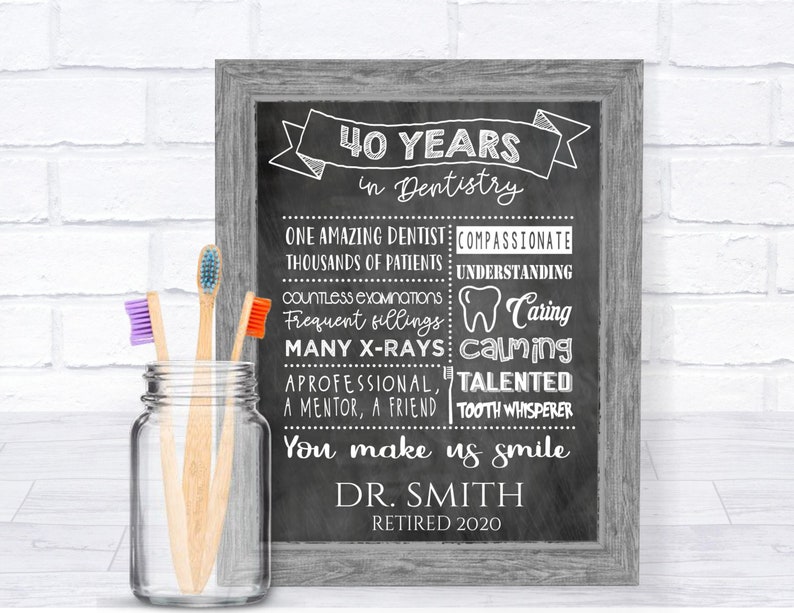 40 YEARS
in Dentistry
ONE AMAZING DENTIST
THOUSANDS OF PATIENTS
COUNTLESS EXAMINATIONS
Frequent fillings
MANY X-RAYS
APROFESSIONAL,
A MENTOR, A FRIEND
COMPASSIONATE
UNDERSTANDING
Caring
CALMING
TALENTED
TOOTH WHISPERER
You make us smile
DR. SMITH
RETIRED 2020